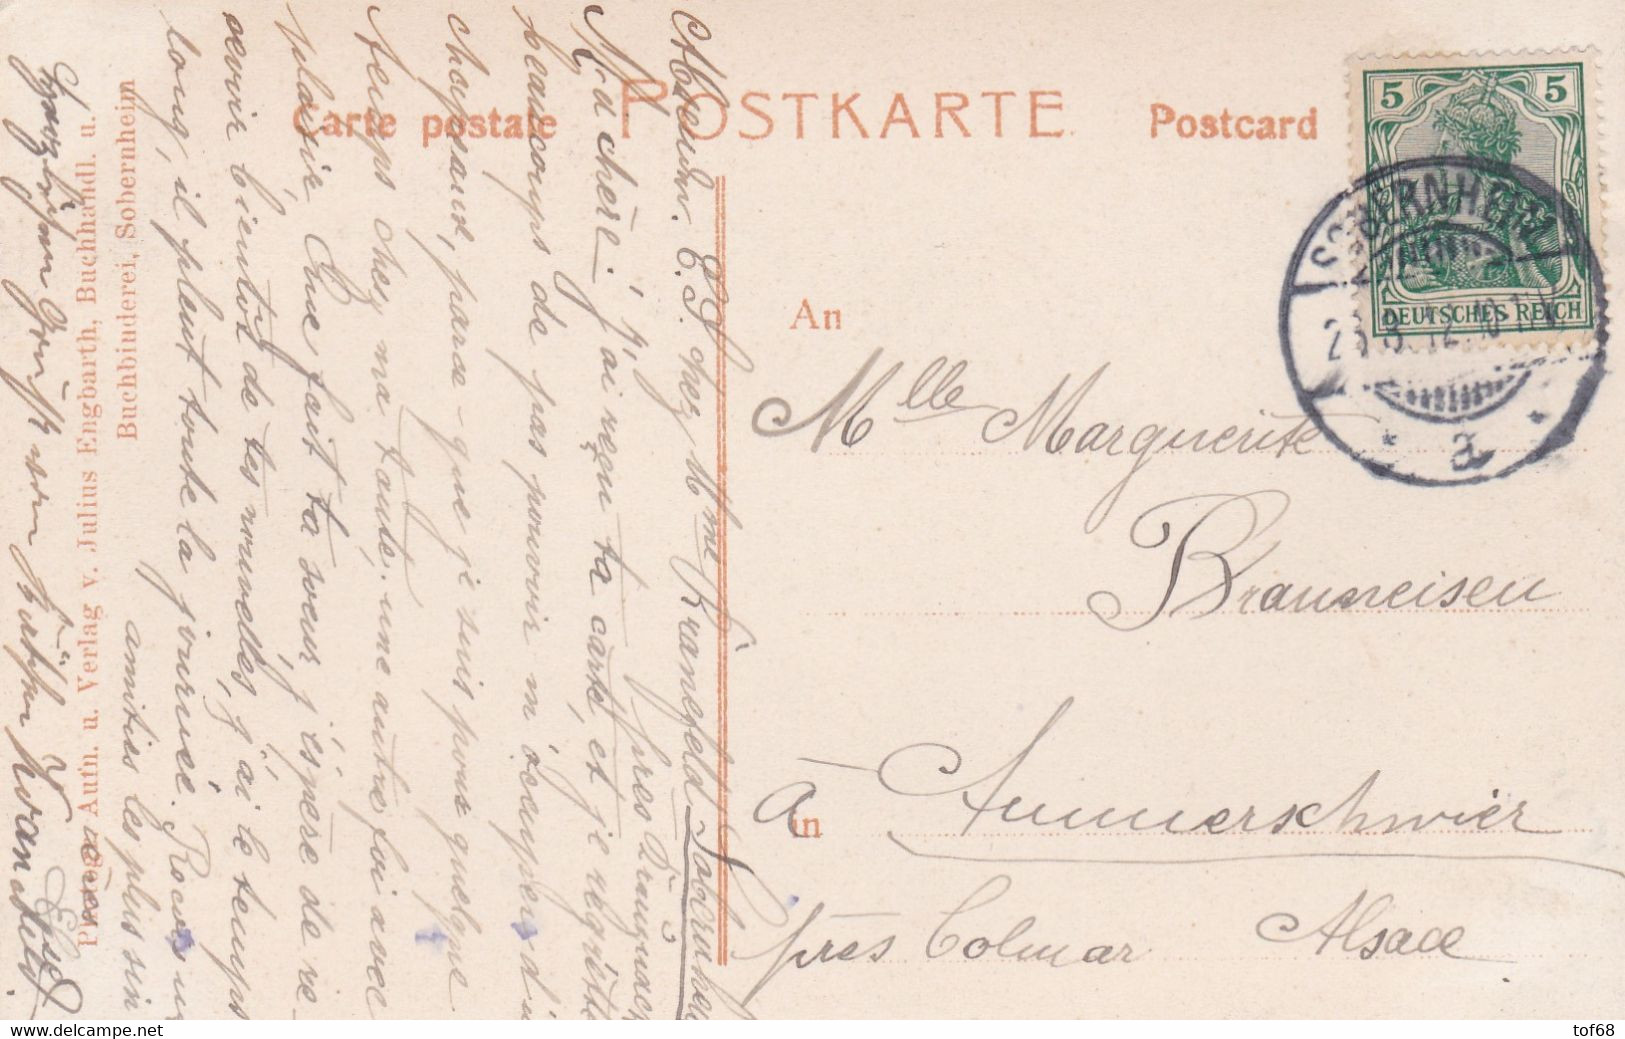 Carte postale POSTKARTE Postcard
5 5
DEUTSCHES REICH
SOBERNHEIM
a
An
Mlle Marguerite
Brauneisen
à in Ammerschwier
près Colmar Alsace
Photogr. Autn. u. Verlag v. Julius Engbarth, Buchhandl. u.
Buchbinderei, Sobernheim
chez Mme Kranefeld Sobernheim
près
Ma chère, j'ai reçu ta carte, et je regrette
beaucoup de pas pouvoir m'occuper du
parce-que je suis pour quelque
temps chez ma tante; une autre foi avec
plaisir. Que fait ta sœur, j'éspère de re
cevoir bientôt de tes nouvelles, j'ai le temps
long, il pleut toute la journée. Recois
amitiés les plus sin
cères
Elsa
tof68